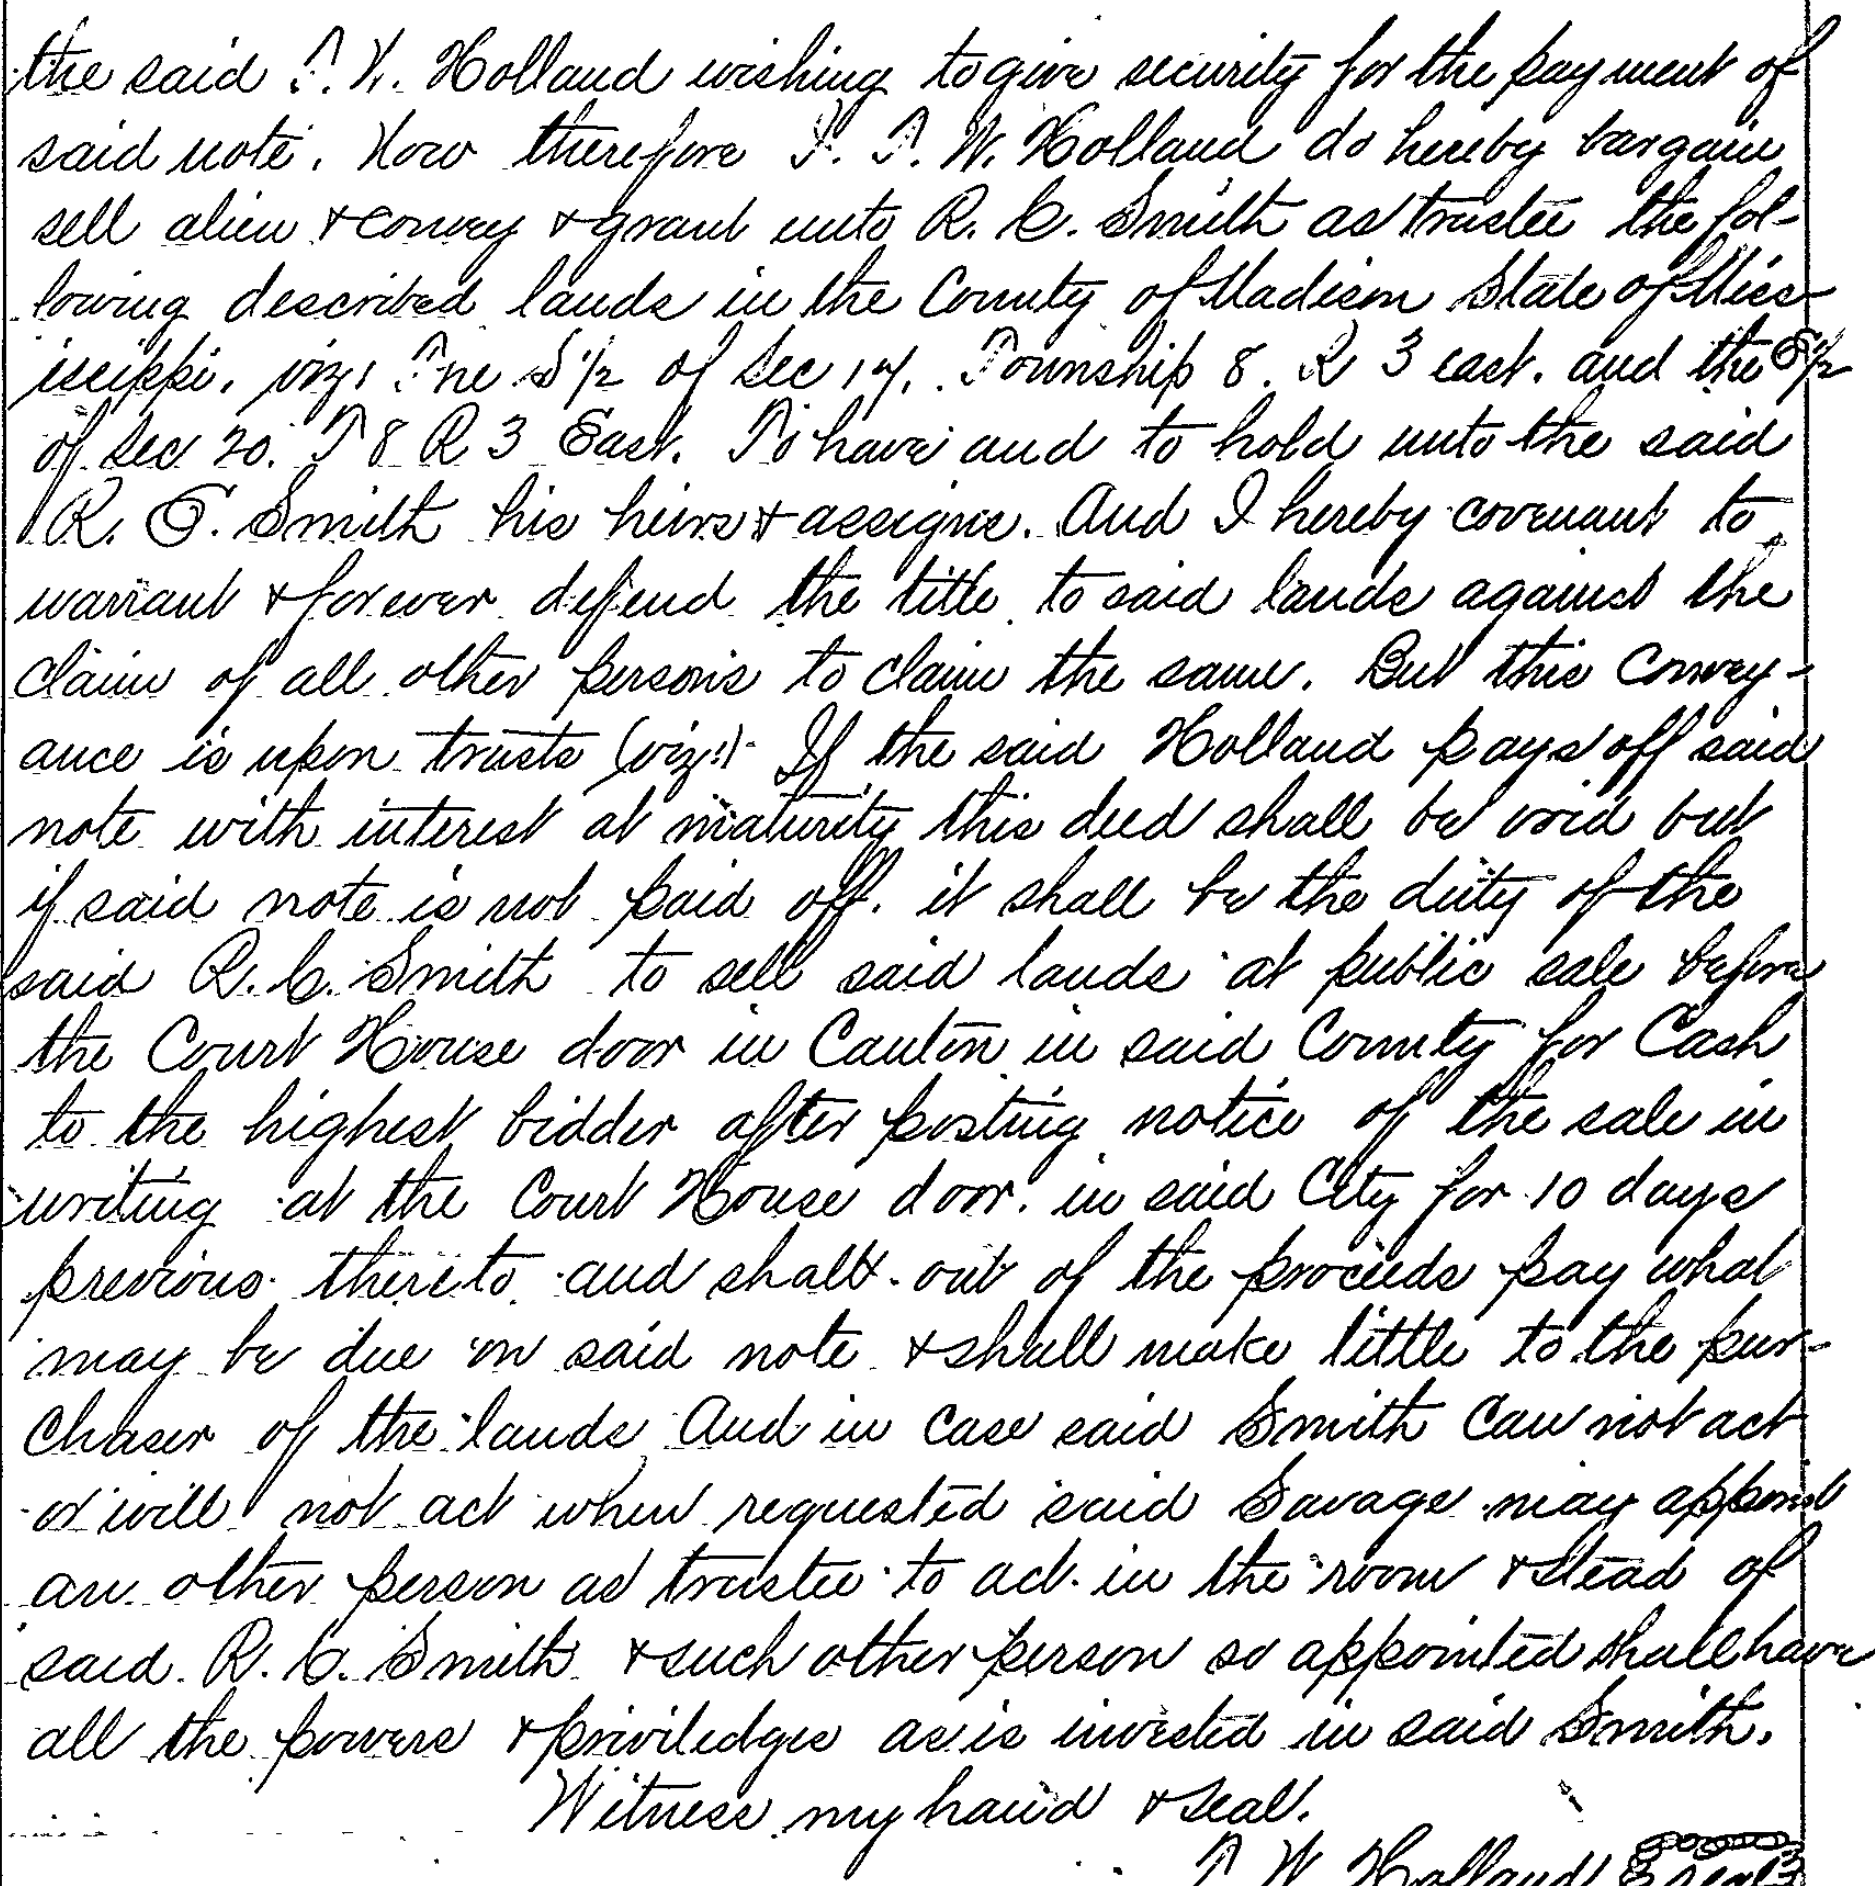 the said T. W. Holland wishing to give security for the payment of
said note. Now therefore I. T. W. Holland do hereby bargain
sell alien & convey & grant unto R. C. Smith as trustee the fol-
lowing described lands in the County of Madison State of Miss-
issippi, viz: The S 1/2 of Sec 17, Township 8. R 3 east. and the E 1/2
of Sec 20. T 8 R 3 East. To have and to hold unto the said
R. C. Smith his heirs & assigns. And I hereby covenant to
warrant & forever defend the title to said lands against the
claim of all other persons to claim the same. But this convey-
ance is upon trusts (viz:) If the said Holland pays off said
note with interest at maturity this deed shall be void but
if said note is not paid off. it shall be the duty of the
said R. C. Smith to sell said lands at public sale before
the Court House door in Canton in said County for Cash
to the highest bidder after posting notice of the sale in
writing at the Court House door in said City for 10 days
previous thereto and shall out of the proceeds pay what
may be due on said note & shall make tittle to the pur-
chaser of the lands And in case said Smith can not act
or will not act when requested said Savage may appoint
an other person as trustee to act in the room & stead of
said R. C. Smith & such other person so appointed shall have
all the powers & priviledges as is invested in said Smith.
Witness my hand & seal.
T W Holland seal